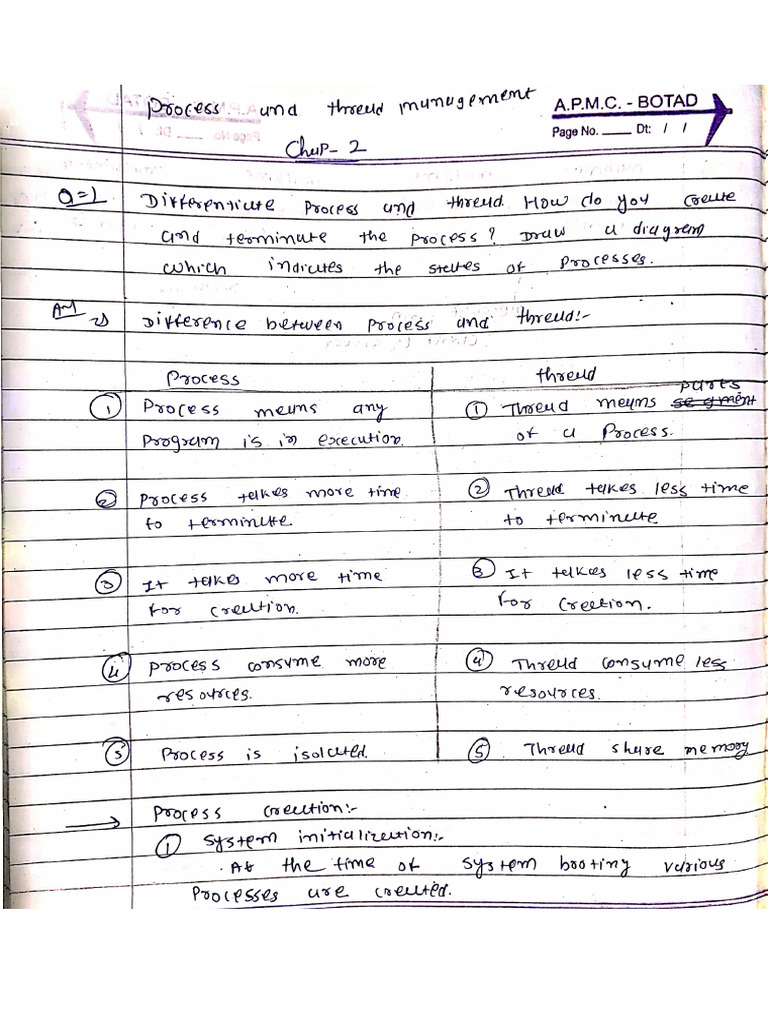 Process and thread management
A.P.M.C. - BOTAD
Page No. ____ Dt: / /
Chap- 2
Q=1 Differentiate process and thread. How do you create
and terminate the process? Draw a diagram
which indicates the states of processes.
Ans Difference between process and thread:-
Process thread
① Process means any ① Thread means parts segment
program is in execution. of a process.
② Process takes more time ② Thread takes less time
to terminate. to terminate
③ It takes more time ③ It takes less time
for creation. for creation.
④ Process consume more ④ Thread consume less
resources. resources.
⑤ Process is isolated. ⑤ Thread share memory
→ Process creation:-
① System initialization:-
. At the time of system booting various
processes are created.